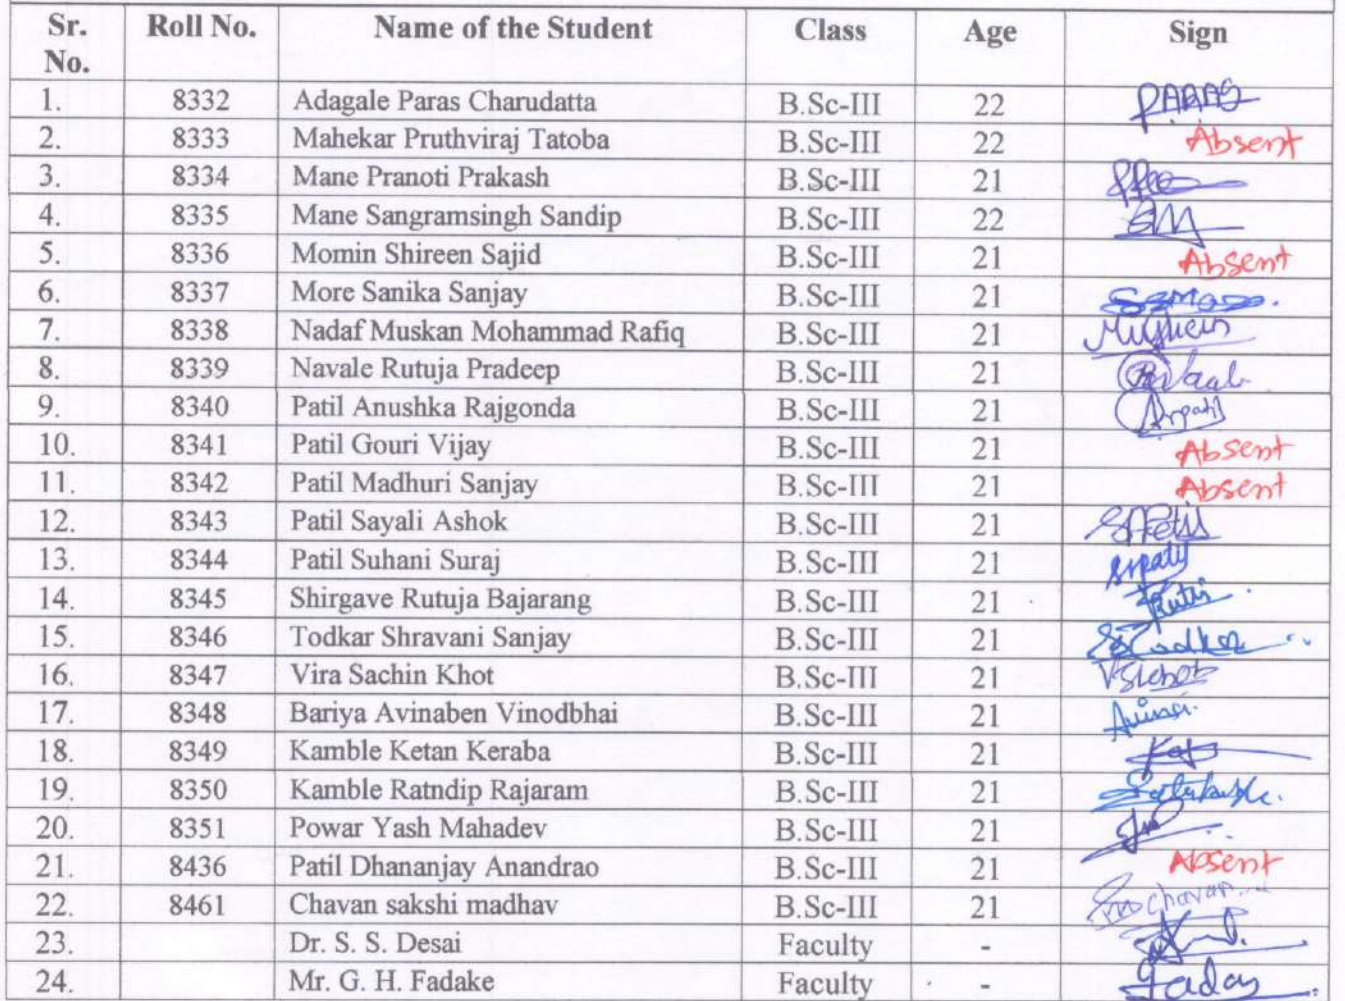 Sr. No. Roll No. Name of the Student Class Age Sign
1. 8332 Adagale Paras Charudatta B.Sc-III 22 PARAS
2. 8333 Mahekar Pruthviraj Tatoba B.Sc-III 22 Absent
3. 8334 Mane Pranoti Prakash B.Sc-III 21
4. 8335 Mane Sangramsingh Sandip B.Sc-III 22
5. 8336 Momin Shireen Sajid B.Sc-III 21 Absent
6. 8337 More Sanika Sanjay B.Sc-III 21
7. 8338 Nadaf Muskan Mohammad Rafiq B.Sc-III 21
8. 8339 Navale Rutuja Pradeep B.Sc-III 21
9. 8340 Patil Anushka Rajgonda B.Sc-III 21
10. 8341 Patil Gouri Vijay B.Sc-III 21 Absent
11. 8342 Patil Madhuri Sanjay B.Sc-III 21 Absent
12. 8343 Patil Sayali Ashok B.Sc-III 21
13. 8344 Patil Suhani Suraj B.Sc-III 21
14. 8345 Shirgave Rutuja Bajarang B.Sc-III 21
15. 8346 Todkar Shravani Sanjay B.Sc-III 21
16. 8347 Vira Sachin Khot B.Sc-III 21
17. 8348 Bariya Avinaben Vinodbhai B.Sc-III 21
18. 8349 Kamble Ketan Keraba B.Sc-III 21
19. 8350 Kamble Ratndip Rajaram B.Sc-III 21
20. 8351 Powar Yash Mahadev B.Sc-III 21
21. 8436 Patil Dhananjay Anandrao B.Sc-III 21 Absent
22. 8461 Chavan sakshi madhav B.Sc-III 21
23. Dr. S. S. Desai Faculty -
24. Mr. G. H. Fadake Faculty -